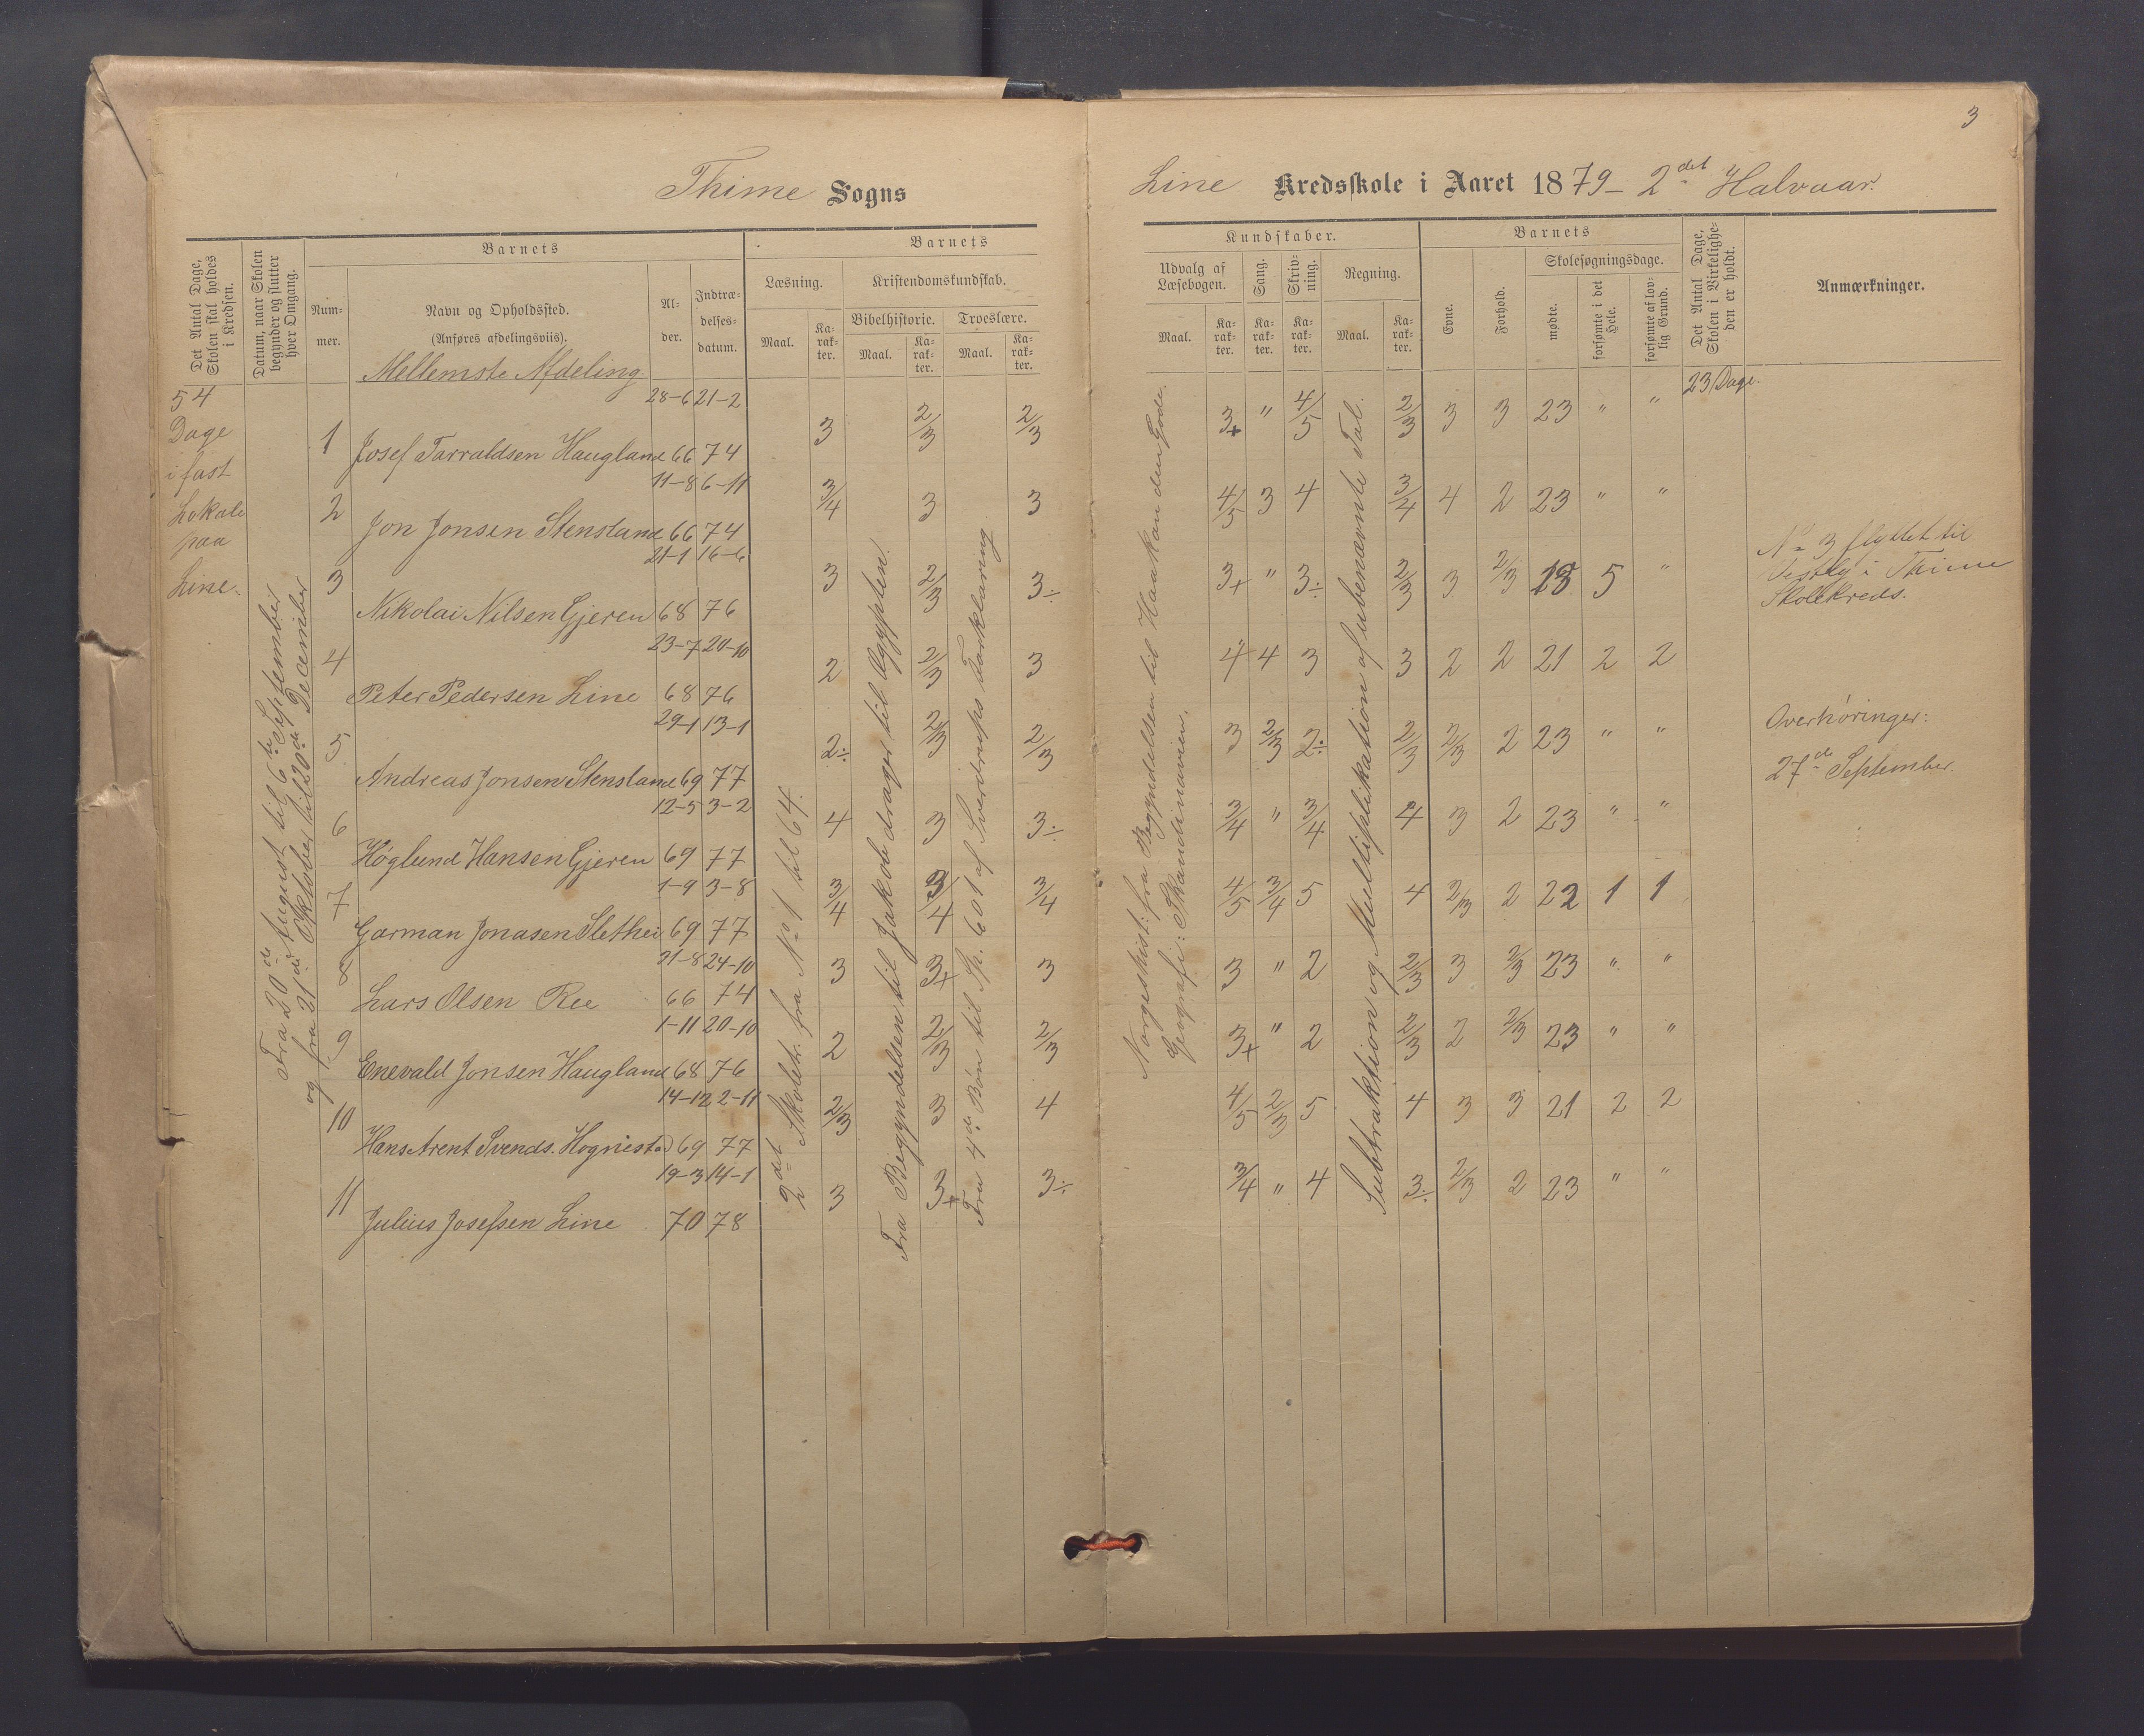 3
Thime Sogns
Line Kredsskole i Aaret 1879 – 2det Halvaar.
Det Antal Dage, Skolen skal holdes i Kredsen.
Datum, naar Skolen begynder og slutter hver Omgang.
Barnets
Num-mer.
Navn og Opholdssted.
(Anføres afdelingsviis).
Al-der.
Indtræ-delses-datum.
Barnets
Læsning.
Maal.
Ka-rak-ter.
Kristendomskundskab.
Bibelhistorie.
Maal.
Ka-rak-ter.
Troeslære.
Maal.
Ka-rak-ter.
Kundskaber.
Udvalg af Læsebogen.
Maal.
Ka-rak-ter.
Sang.
Ka-rak-ter.
Skriv-ning.
Ka-rak-ter.
Regning.
Maal.
Ka-rak-ter.
Barnets
Evne.
Forhold.
Skolesøgningsdage.
mødte.
forsømte i det Hele.
forsømte af lov-lig Grund.
Det Antal Dage, Skolen i Virkelighe-den er holdt.
Anmærkninger.
Mellemste Afdeling
54
Dage
i fast
Lokale
paa
Line.
Fra 20de August til 6te September
og fra 21de Oktober til 20de December
2det Skoletr. fra No 1 til 64.
Fra Begyndelsen til Jakob drager til Ægypten.
Fra 4de Bøn til Sp. 601 af Sverdrups Forklaring
Norgeshist: fra Begyndelsen til Haakan den Gode.
Geografi: Skandinavien.
Subtraktion og Multiplikation af ubenævnte Tal.
23 Dage.
28-6 21-2
1 Josef Tarraldsen Haugland 66 74 3 2/3 2/3 3+ " 4/5 2/3 3 3 23 " "
11-8 6-11
2 Jon Jonsen Stensland 66 74 3/4 3 3 4/5 3 4 3/4 4 2 23 " "
21-1 16-6
3 Nikolai Nilsen Gjeren 68 76 3 2/3 3÷ 3+ " 3÷ 2/3 3 2/3 18 5 "
23-7 20-10
4 Peter Pedersen Line 68 76 2 2/3 3 4 4 3 3 2 2 21 2 2
29-1 13-1
5 Andreas Jonsen Stensland 69 77 2÷ 2/3 2/3 3 2/3 2÷ 2/3 2/3 2 23 " "
12-5 3-2
6 Høglund Hansen Gjeren 69 77 4 3 3÷ 3/4 " 3/4 4 3 2 23 " "
1-9 3-8
7 Garman Jonasen Slethei 69 77 3/4 3/4 3/4 4/5 3/4 5 4 2/3 2 22 1 1
21-8 24-10
8 Lars Olsen Ree 66 74 3 3+ 3 3 " 2 2/3 3 2/3 23 " "
1-11 20-10
9 Enevald Jonsen Haugland 68 76 2 2/3 2/3 3+ " 2 2/3 2 2/3 23 " "
14-12 2-11
10 Hans Arent Svends. Hognestad 69 77 2/3 3 4 4/5 2/3 5 4 3 3 21 2 2
19-3 14-1
11 Julius Josefsen Line 70 78 3 3+ 3÷ 3/4 " 4 3÷ 2/3 2 23 " "
No 3 flyttet til
i Thime
Skolekreds.
Overhøringer:
27de September.